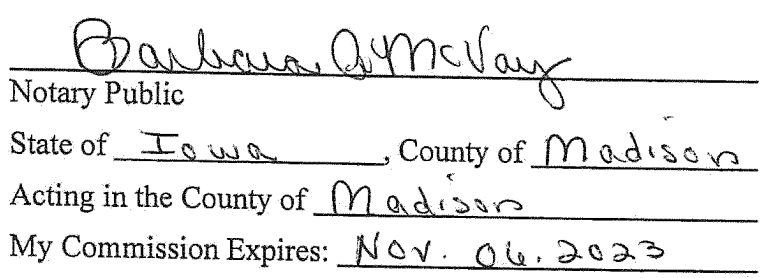 Barbara A McVay
Notary Public
State of Iowa, County of Madison
Acting in the County of Madison
My Commission Expires: Nov. 06. 2023